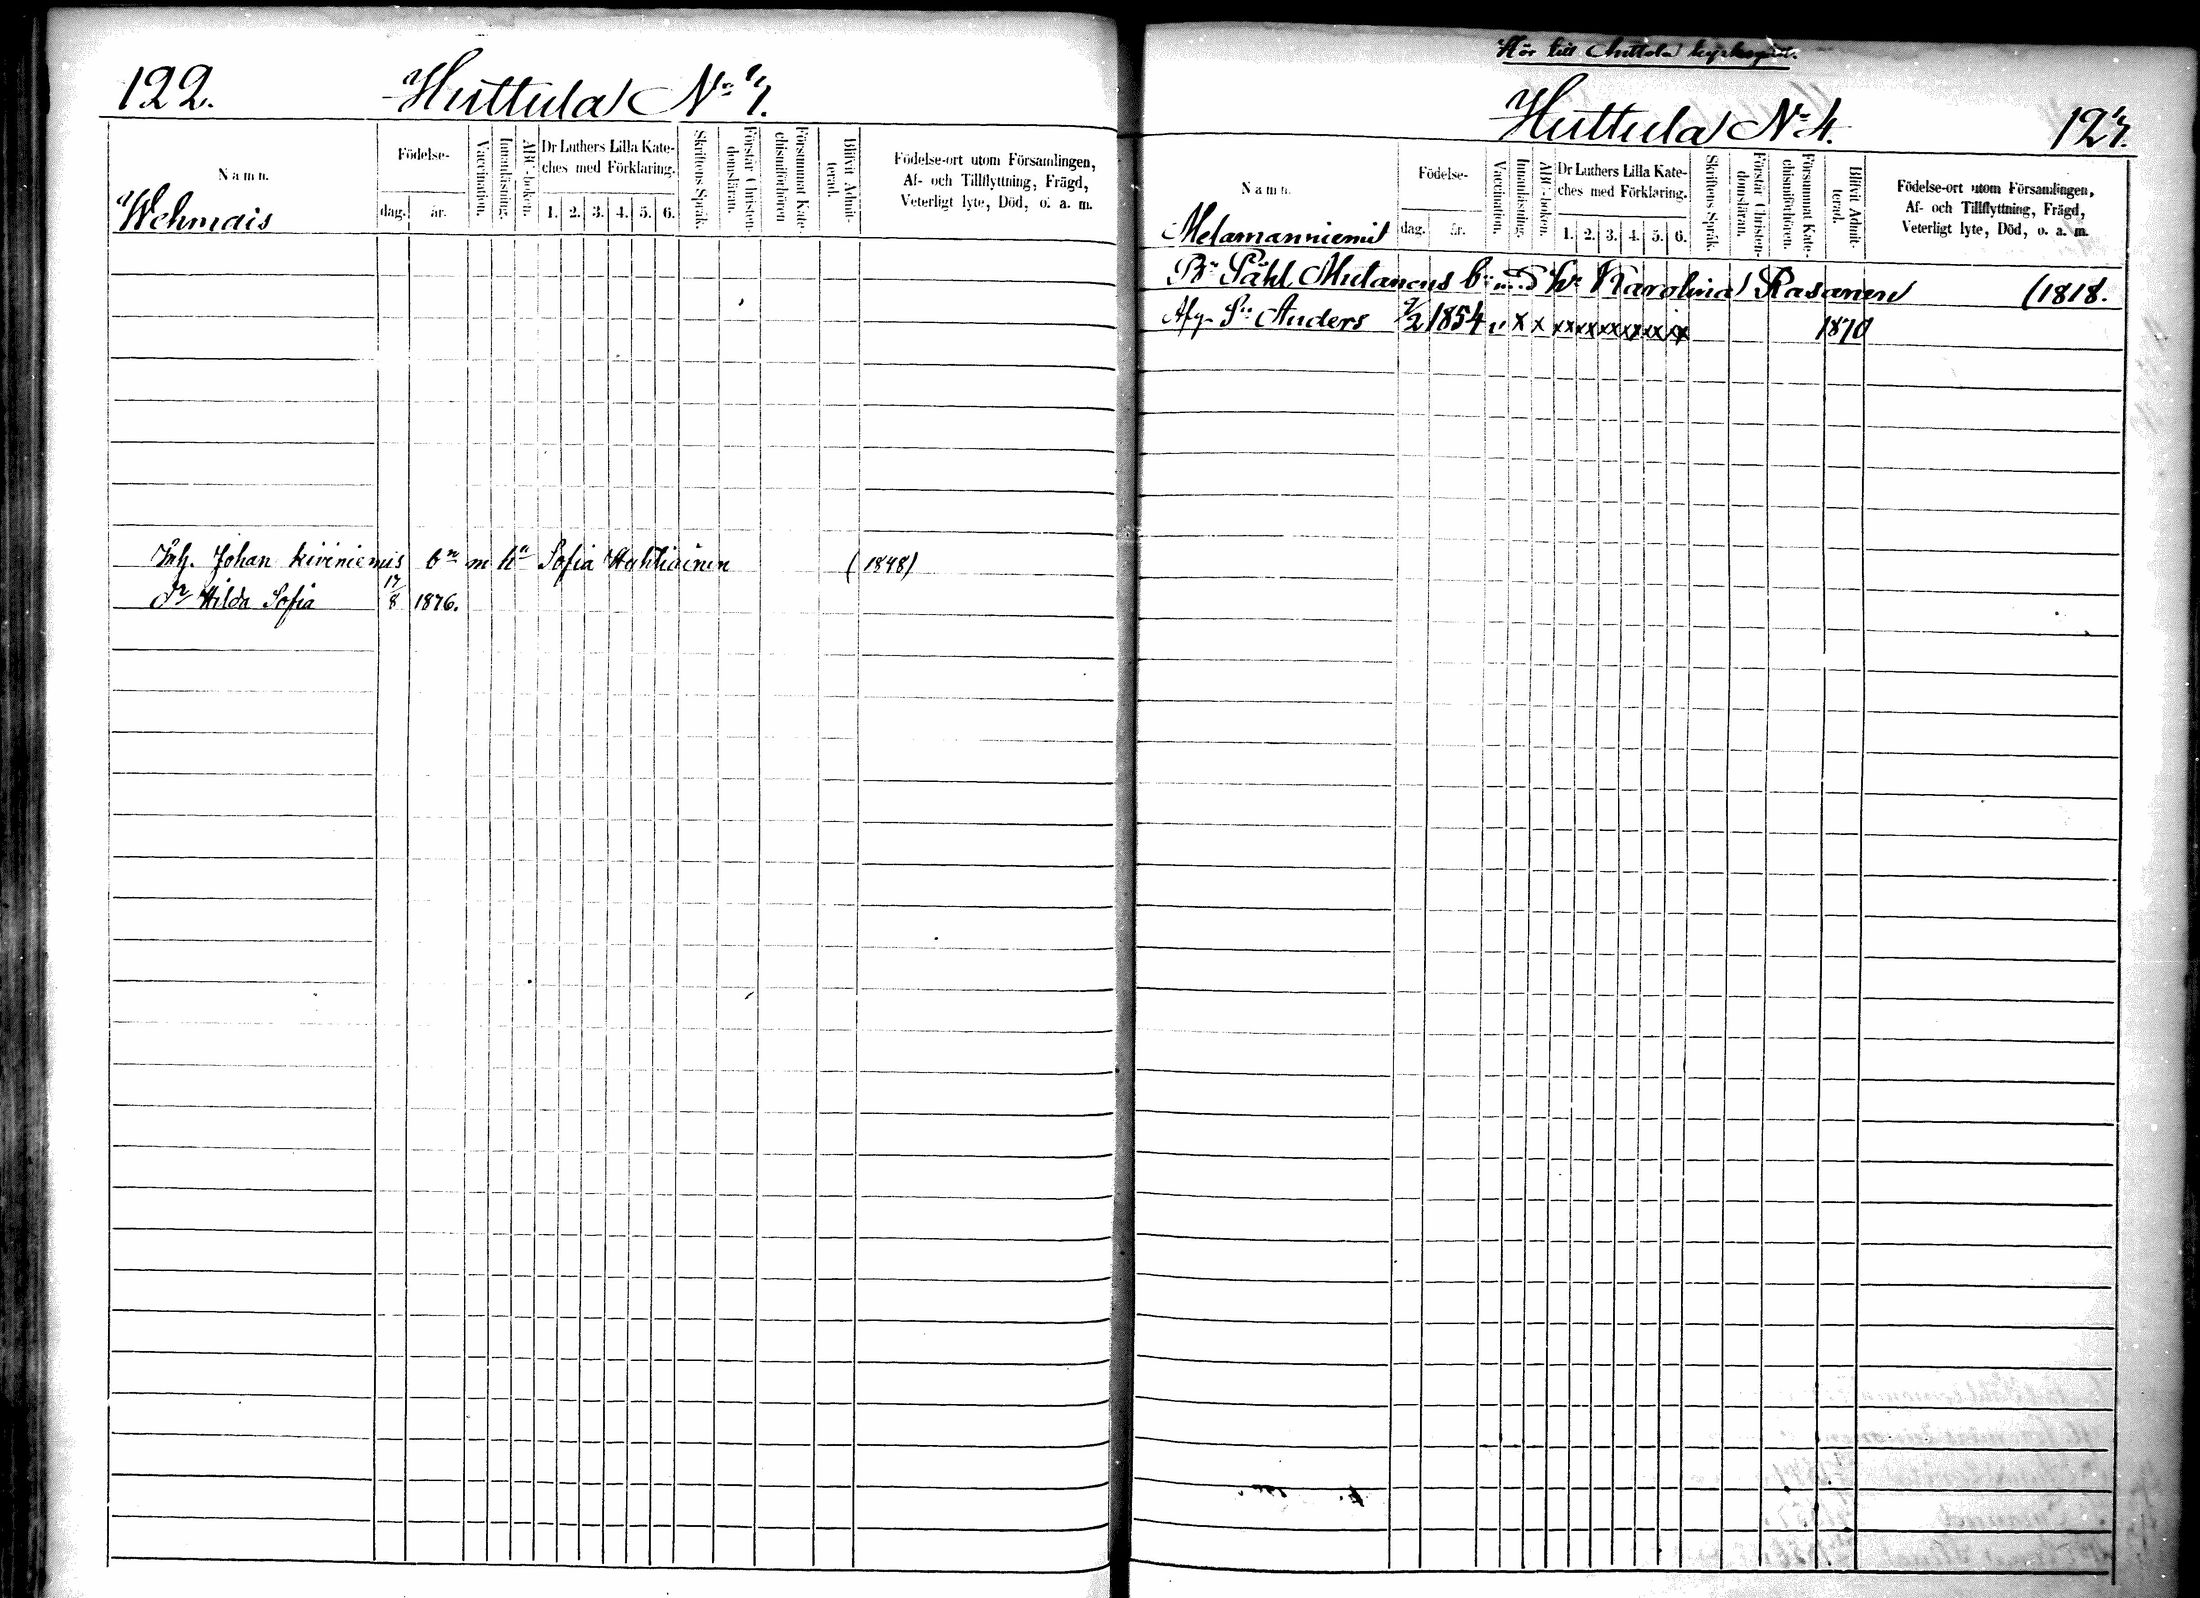 122.
Huttula No 3.
Namn.
Födelse-
dag.
år.
Vaccination.
Innanläsning.
ABC-boken.
Dr Luthers Lilla Kate-
ches med Förklaring.
1. 2. 3. 4. 5. 6.
Skriftens Språk.
Förstår Christen-
domsläran.
Försummat Kate-
chismiförhören
Blifvit Admit-
terad.
Födelse-ort utom Församlingen,
Af- och Tillflyttning, Frägd,
Veterligt lyte, Död, o. a. m.
Wehmais
Inh. Johan Kiviniemis bn m hu Sofia (1848)
Dr Hilda Sofia 17/8 1876.
Hör till
Huttula No 4.
123.
Namn.
Födelse-
dag.
år.
Vaccination.
Innanläsning.
ABC-boken.
Dr Luthers Lilla Kate-
ches med Förklaring.
1. 2. 3. 4. 5. 6.
Skriftens Språk.
Förstår Christen-
domsläran.
Försummat Kate-
chismiförhören.
Blifvit Admit-
terad.
Födelse-ort utom Församlingen,
Af- och Tillflyttning, Frägd,
Veterligt lyte, Död, o. a. m.
Melamanniemi
Påhl Mutanens Karolina Räsänen (1818.
Sn Anders 1854 v x x xx xx xx xx xx x 1870